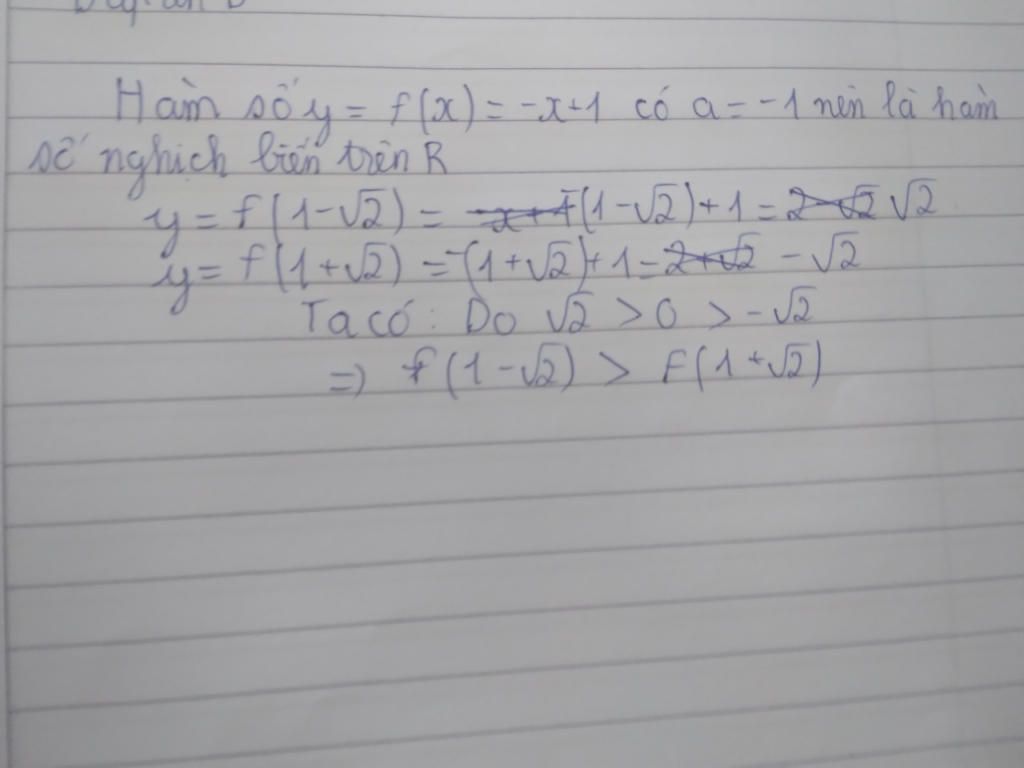 Hàm số y = f(x) = -x+1 có a = -1 nên là hàm
số nghịch biến trên R
y = f(1-√2) = -(1-√2)+1 = √2
y = f(1+√2) = -(1+√2)+1 = -√2
Ta có: Do √2 > 0 > -√2
=> f(1-√2) > F(1+√2)